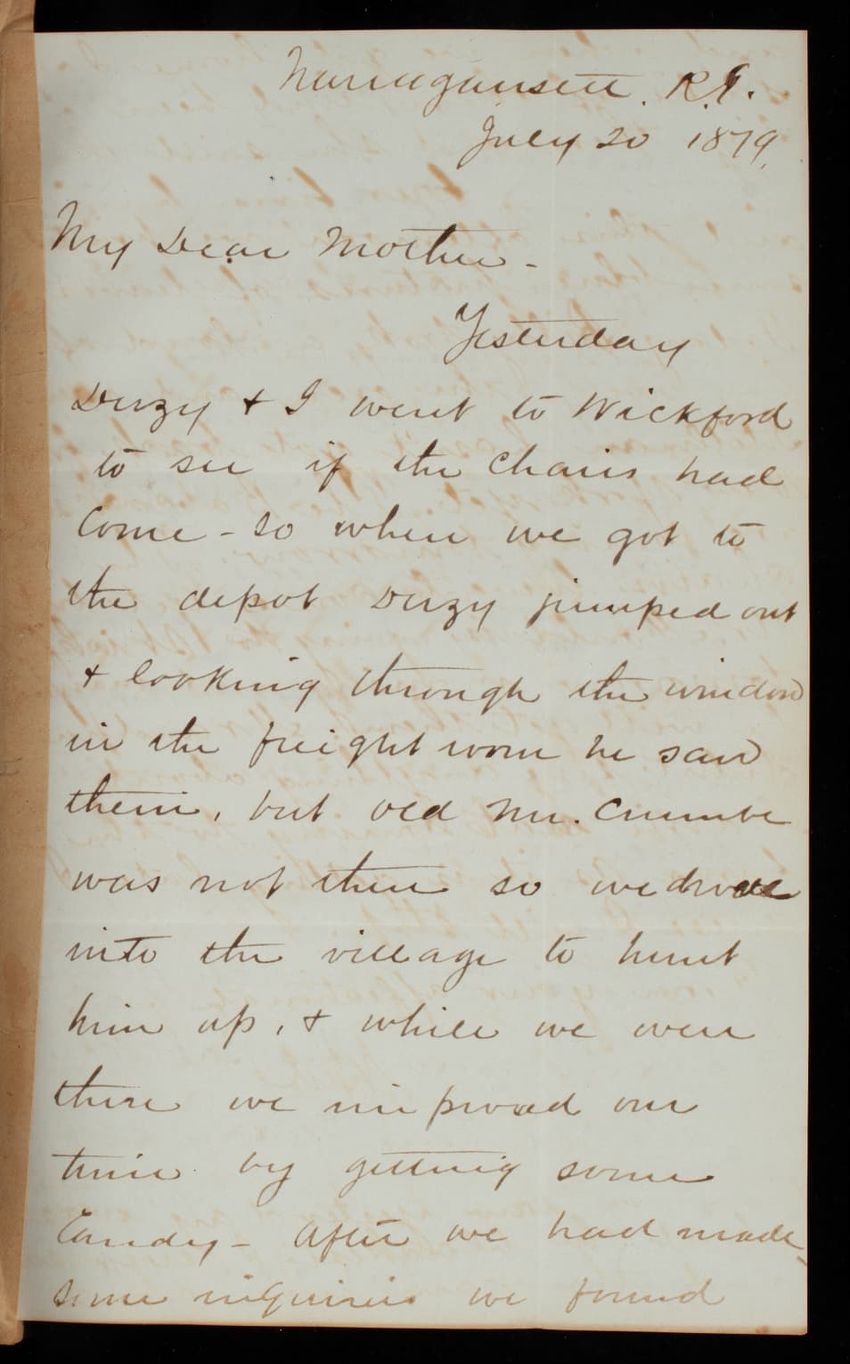 Narragansett. R.I.
July 20 1879.
My Dear Mother -
Yesterday
Duzy + I went to Wickford
to see if the Chairs had
Come - so when we got to
the depot Duzy jumped out
+ looking through the window
in the freight room he saw
them, but old Mr. Crumbe
was not there so we drove
into the village to hunt
him up, + while we were
there we improved our
time by getting some
Candy - After we had made
some inquiries we found